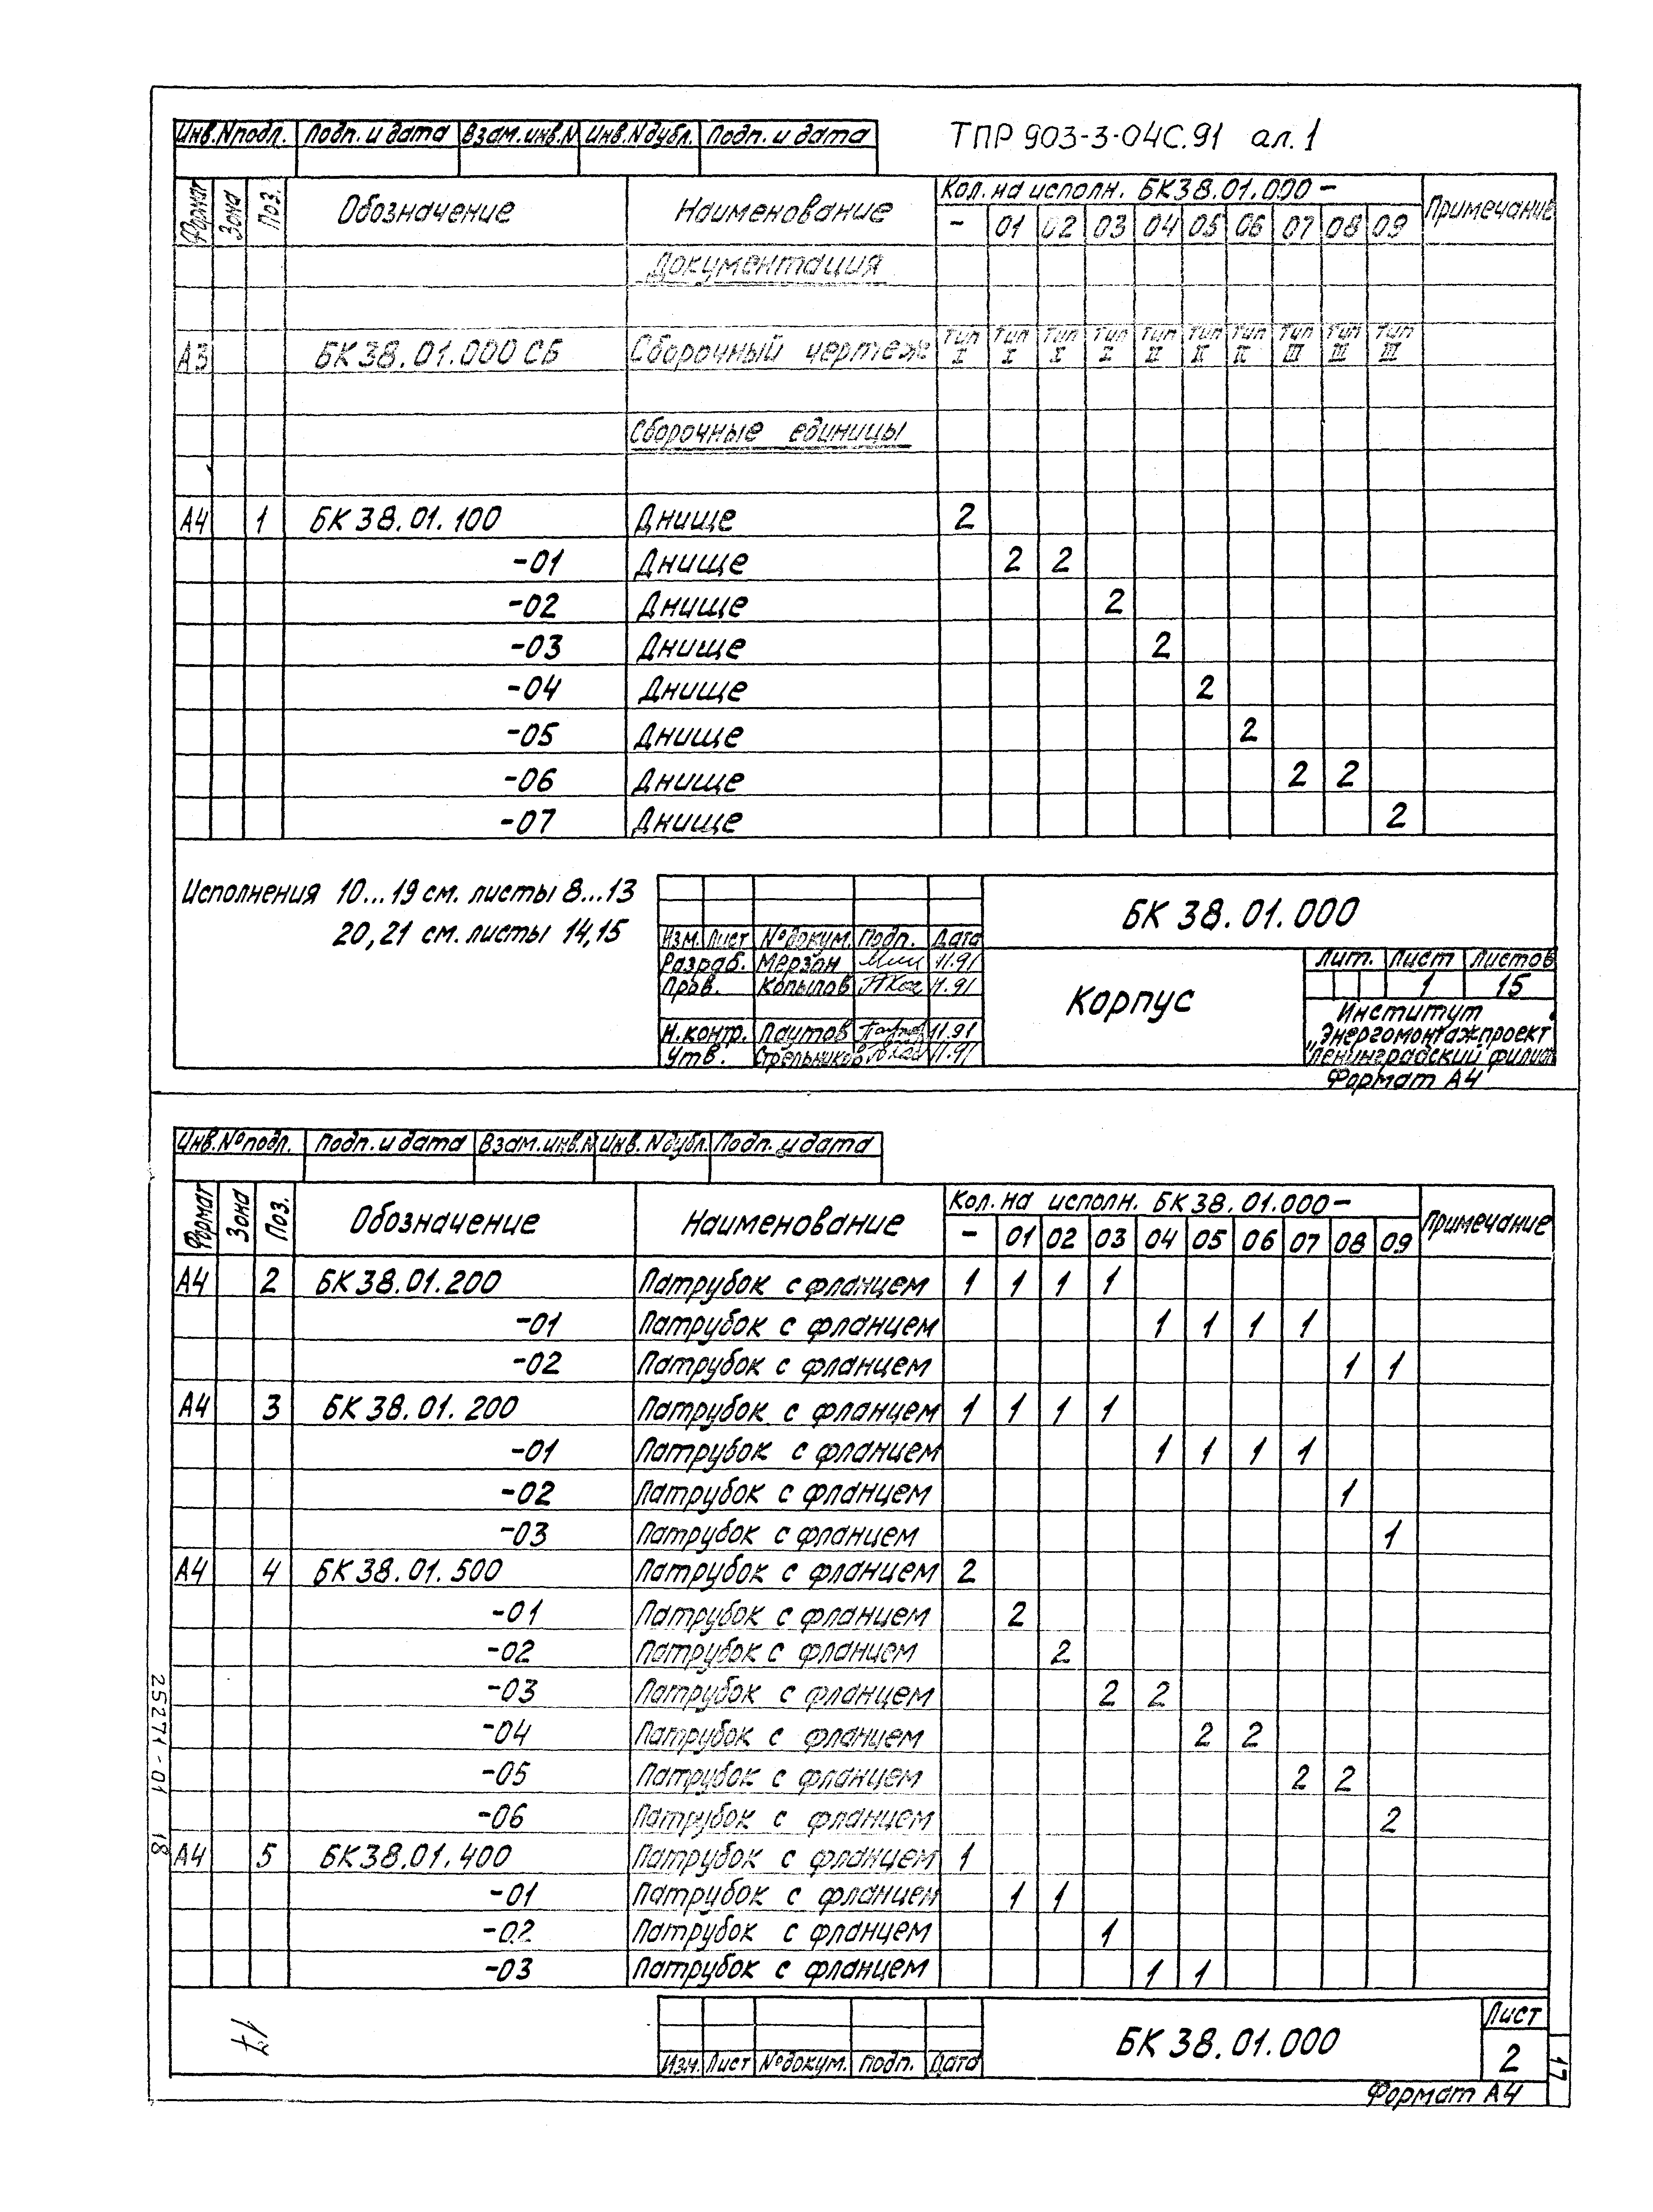 ТПР 903-3-04С.91 ал.1
Инв.Nподл. Подп. и дата Взам.инв.N Инв.Nдубл. Подп. и дата
Формат Зона Поз. Обозначение Наименование Кол. на исполн. БК38.01.000- Примечание
- 01 02 03 04 05 06 07 08 09
Документация
А3 БК38.01.000СБ Сборочный чертеж Тип I Тип I Тип I Тип I Тип II Тип II Тип II Тип III Тип III Тип III
Сборочные единицы
А4 1 БК38.01.100 Днище 2
-01 Днище 2 2
-02 Днище 2
-03 Днище 2
-04 Днище 2
-05 Днище 2
-06 Днище 2 2
-07 Днище 2
Исполнения 10...19 см. листы 8...13
20,21 см. листы 14,15
БК 38.01.000
Изм. Лист №докум. Подп. Дата
Разраб. Мерзон 11.91
Пров. Копылов 11.91
Н.контр. Паутов 11.91
Утв. Стрельников 11.91
Корпус
Лит. Лист Листов
1 15
Институт
"Энергомонтажпроект
Ленинградский филиал
Формат А4
Инв.№подл. Подп. и дата Взам.инв.N Инв.Nдубл. Подп. и дата
Формат Зона Поз. Обозначение Наименование Кол. на исполн. БК38.01.000- Примечание
- 01 02 03 04 05 06 07 08 09
А4 2 БК38.01.200 Патрубок с фланцем 1 1 1 1
-01 Патрубок с фланцем 1 1 1 1
-02 Патрубок с фланцем 1 1
А4 3 БК38.01.200 Патрубок с фланцем 1 1 1 1
-01 Патрубок с фланцем 1 1 1 1
-02 Патрубок с фланцем 1
-03 Патрубок с фланцем 1
А4 4 БК38.01.500 Патрубок с фланцем 2
-01 Патрубок с фланцем 2
-02 Патрубок с фланцем 2
-03 Патрубок с фланцем 2 2
-04 Патрубок с фланцем 2 2
-05 Патрубок с фланцем 2 2
-06 Патрубок с фланцем 2
А4 5 БК38.01.400 Патрубок с фланцем 1
-01 Патрубок с фланцем 1 1
-02 Патрубок с фланцем 1
-03 Патрубок с фланцем 1 1
25271-01 18
17
Изм. Лист №докум. Подп. Дата
БК 38.01.000
Лист
2
17
Формат А4